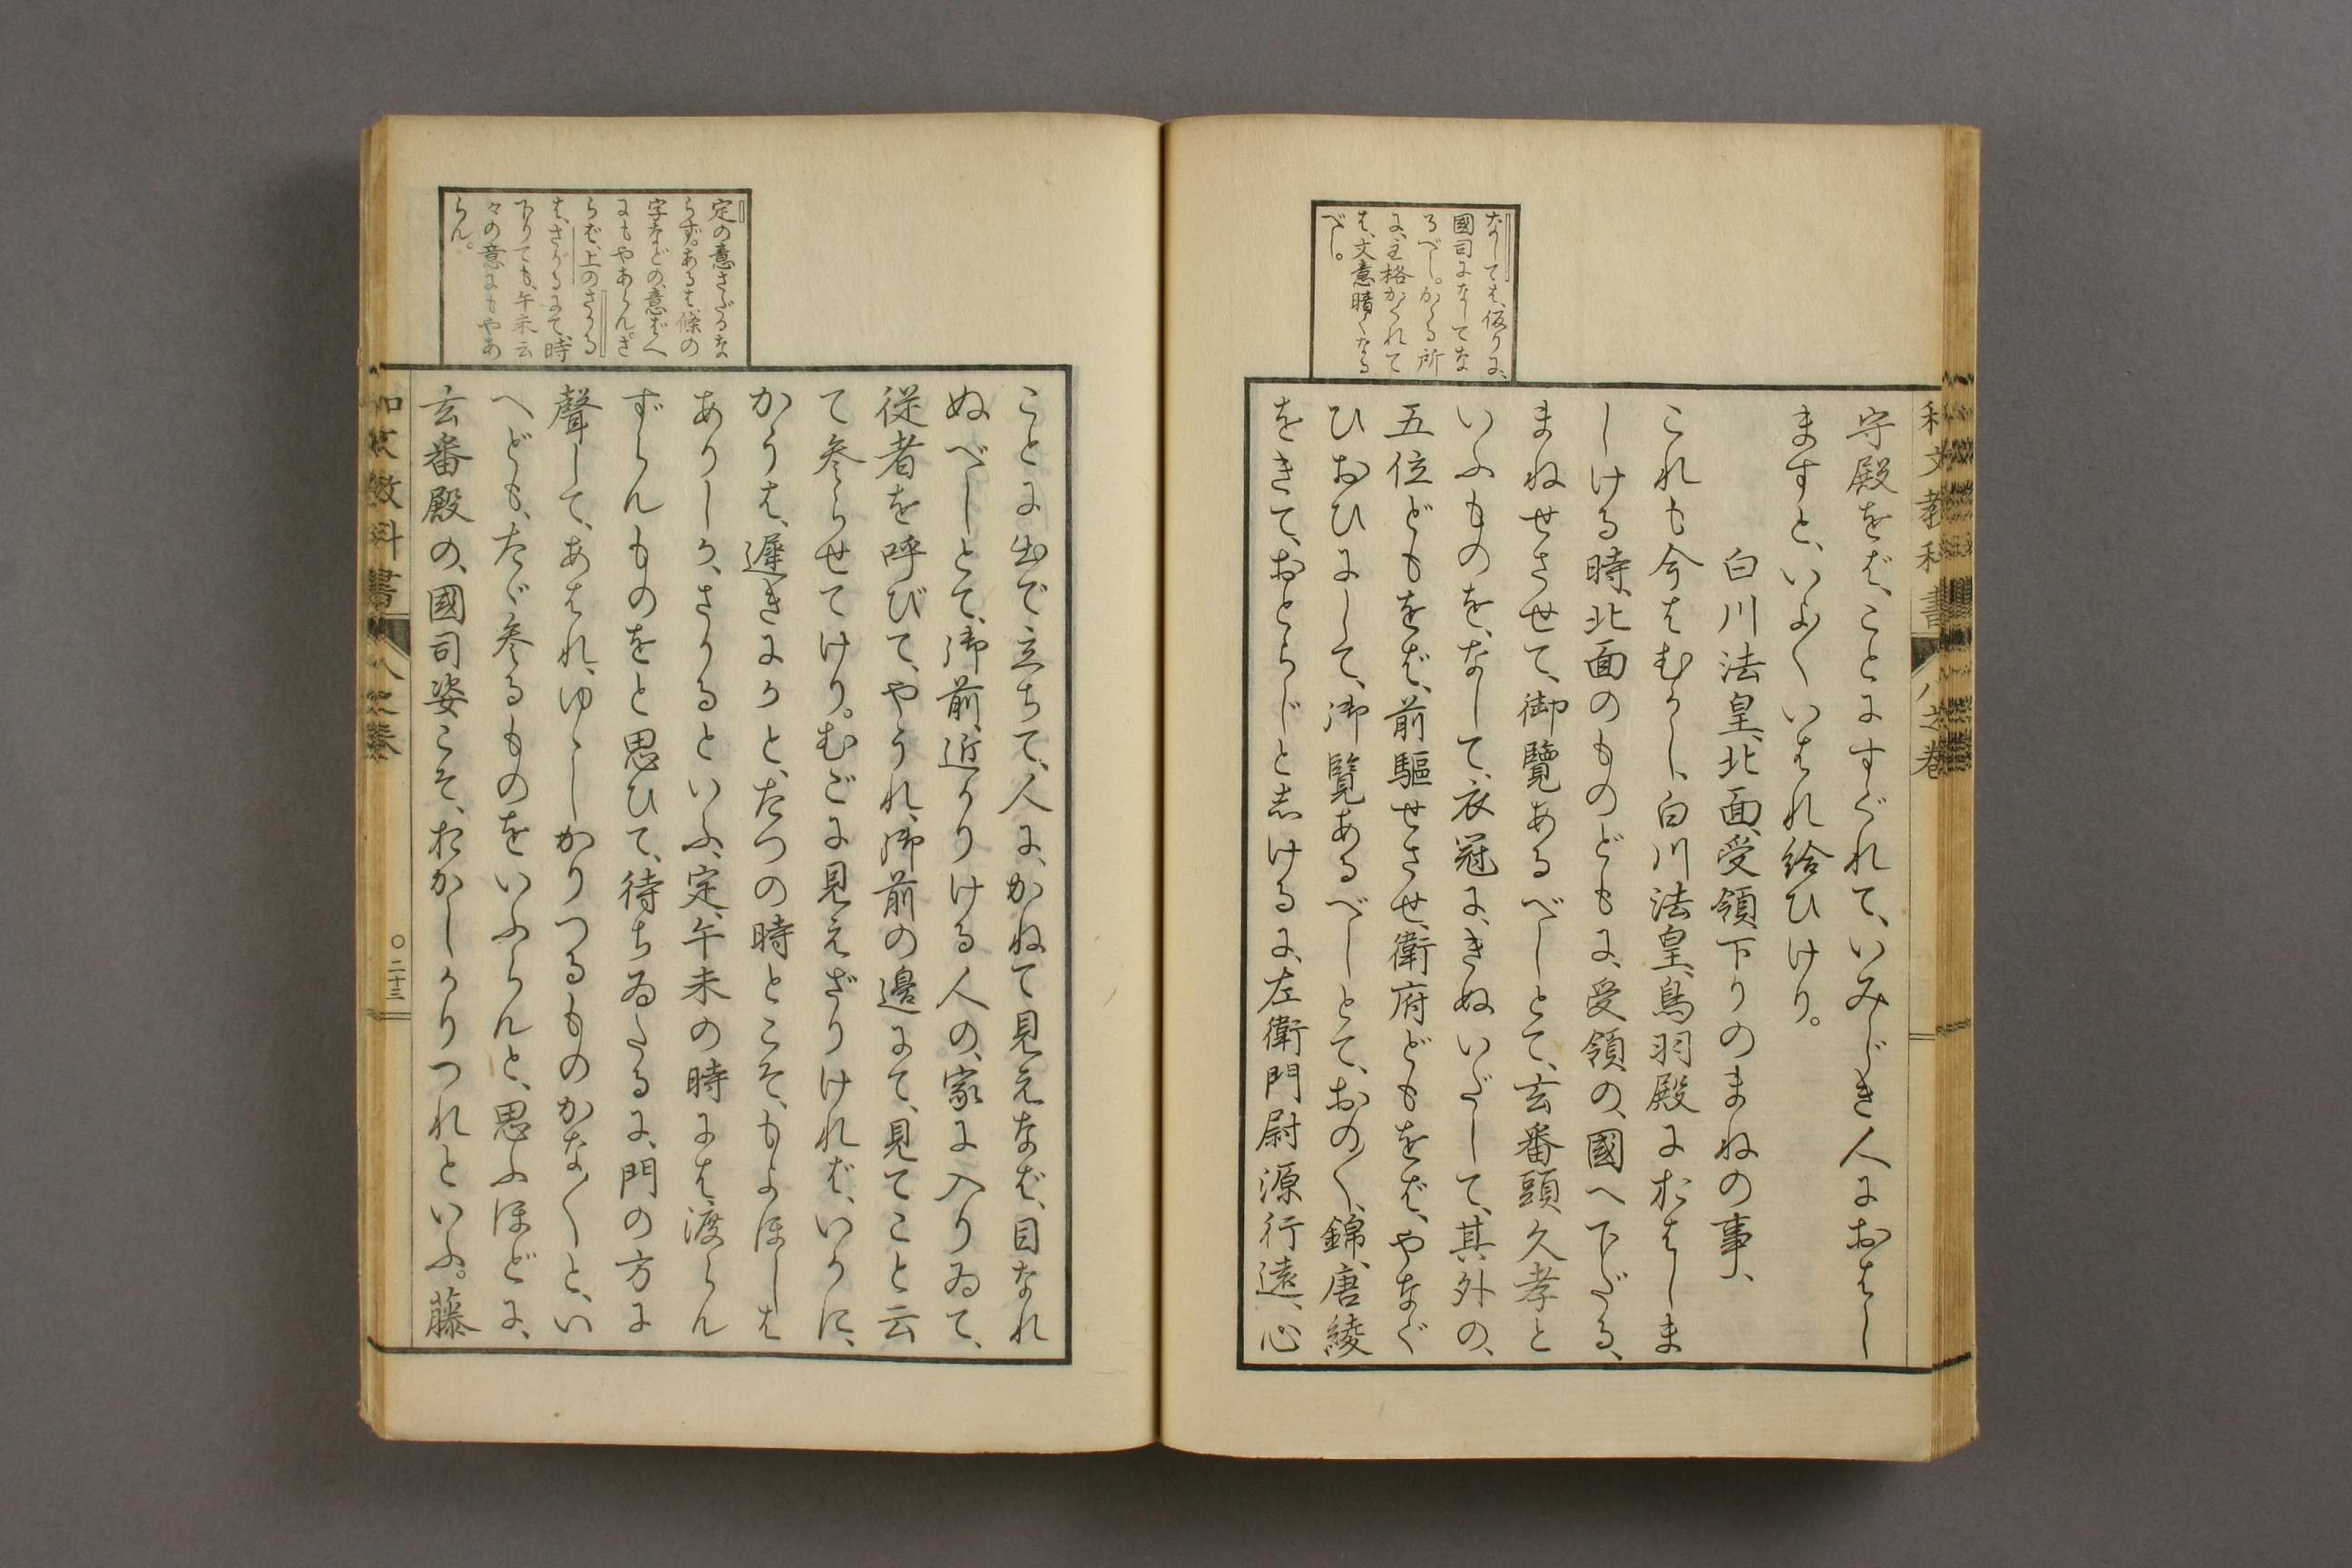 和文教科書 八之卷
なしては、仮りに、
國司になしてな
るべし。かゝる所
に、主格かくれて
は、文意晴くなる
べし。
守殿をば、ことにすぐれて、いみじき人におはし
ますと、いよ〱いはれ給ひけり。
白川法皇、北面、受領下りのまねの事、
これも今はむかし、白川法皇、鳥羽殿におはしま
しける時、北面のものどもに、受領の、國へ下だる、
まねせさせて、御覽あるべしとて、玄番頭久孝と
いふものを、なして、衣冠に、きぬいだして、其外の、
五位どもをば、前驅せさせ、衛府どもをば、やなぐ
ひおひにして、御覽あるべしとて、おの〱、錦、唐綾
をきて、おとらじと志けるに、左衛門尉源行遠、心
定の意さだかな
らず。あるは、條の
字などの、意ばへ
にもやあらん。さ
らば、上のさかる
は、さがるにて、時
下りても、午未云
々の意にもやあ
らん。
ことに出で立ちて、人に、かねて見えなば、目なれ
ぬべしとて、御前、近かりける人の、家に入りゐて、
従者を呼びて、やうれ、御前の邊にて、見てこと云
て参らせてけり。むごに見えざりければ、いかに、
かうは、遲きにかと、たつの時とこそ、もよほしは
ありしか、さかるといふ、定、午未の時には、渡らん
ずらんものをと思ひて、待ちゐたるに、門の方に
聲して、あはれ、ゆゝしかりつるものかな〱と、い
へども、たゞ参るものをいふらんと、思ふほどに、
玄番殿の、國司姿こそ、おかしかりつれといふ。藤
和文教科書 八之卷
〇二十三